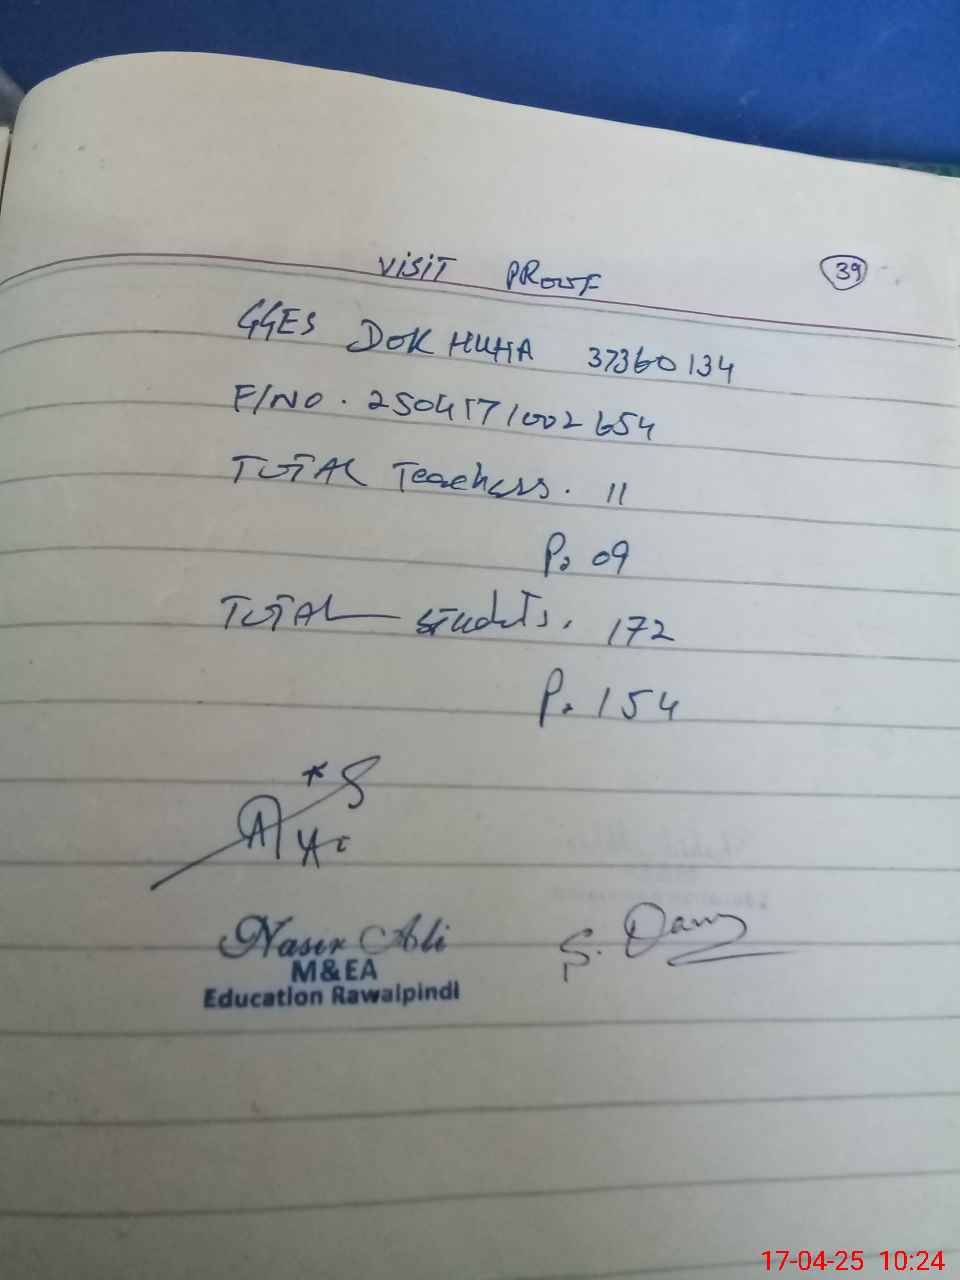 VISIT PROOF
39
GGES DOK HUHA 37360134
F/NO. 2504171002654
TOTAL Teachers. 11
P. 09
TOTAL students. 172
P. 154
Nasir Ali
M&EA
Education Rawalpindi
17-04-25 10:24